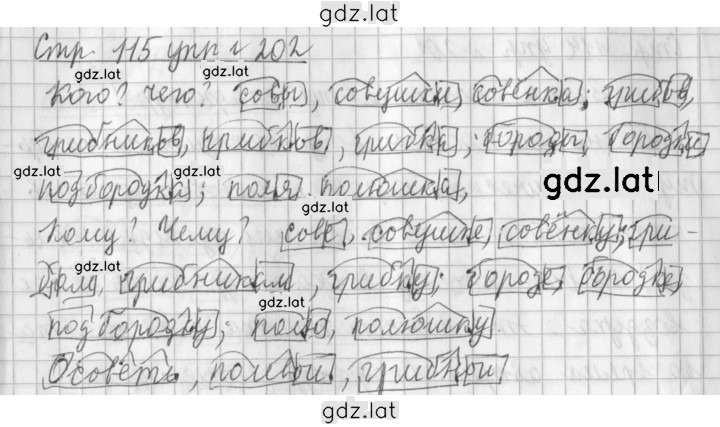 gdz.lat
Стр. 115 упр г 202
gdz.lat gdz.lat
Кого? Чего? совы, совушки, совёнка; грибов,
gdz.lat
грибников, грибков, грибка; бороды бородки
gdz.lat gdz.lat gdz.lat
подбородка; поля полюшка,
Кому? Чему? сове, совушке, совёнку; гри-
gdz.lat
бам, грибникам, грибку; бороде, бородке
gdz.lat
подбородку; полю, полюшку.
Осоветь, полевой, грибной
gdz.lat